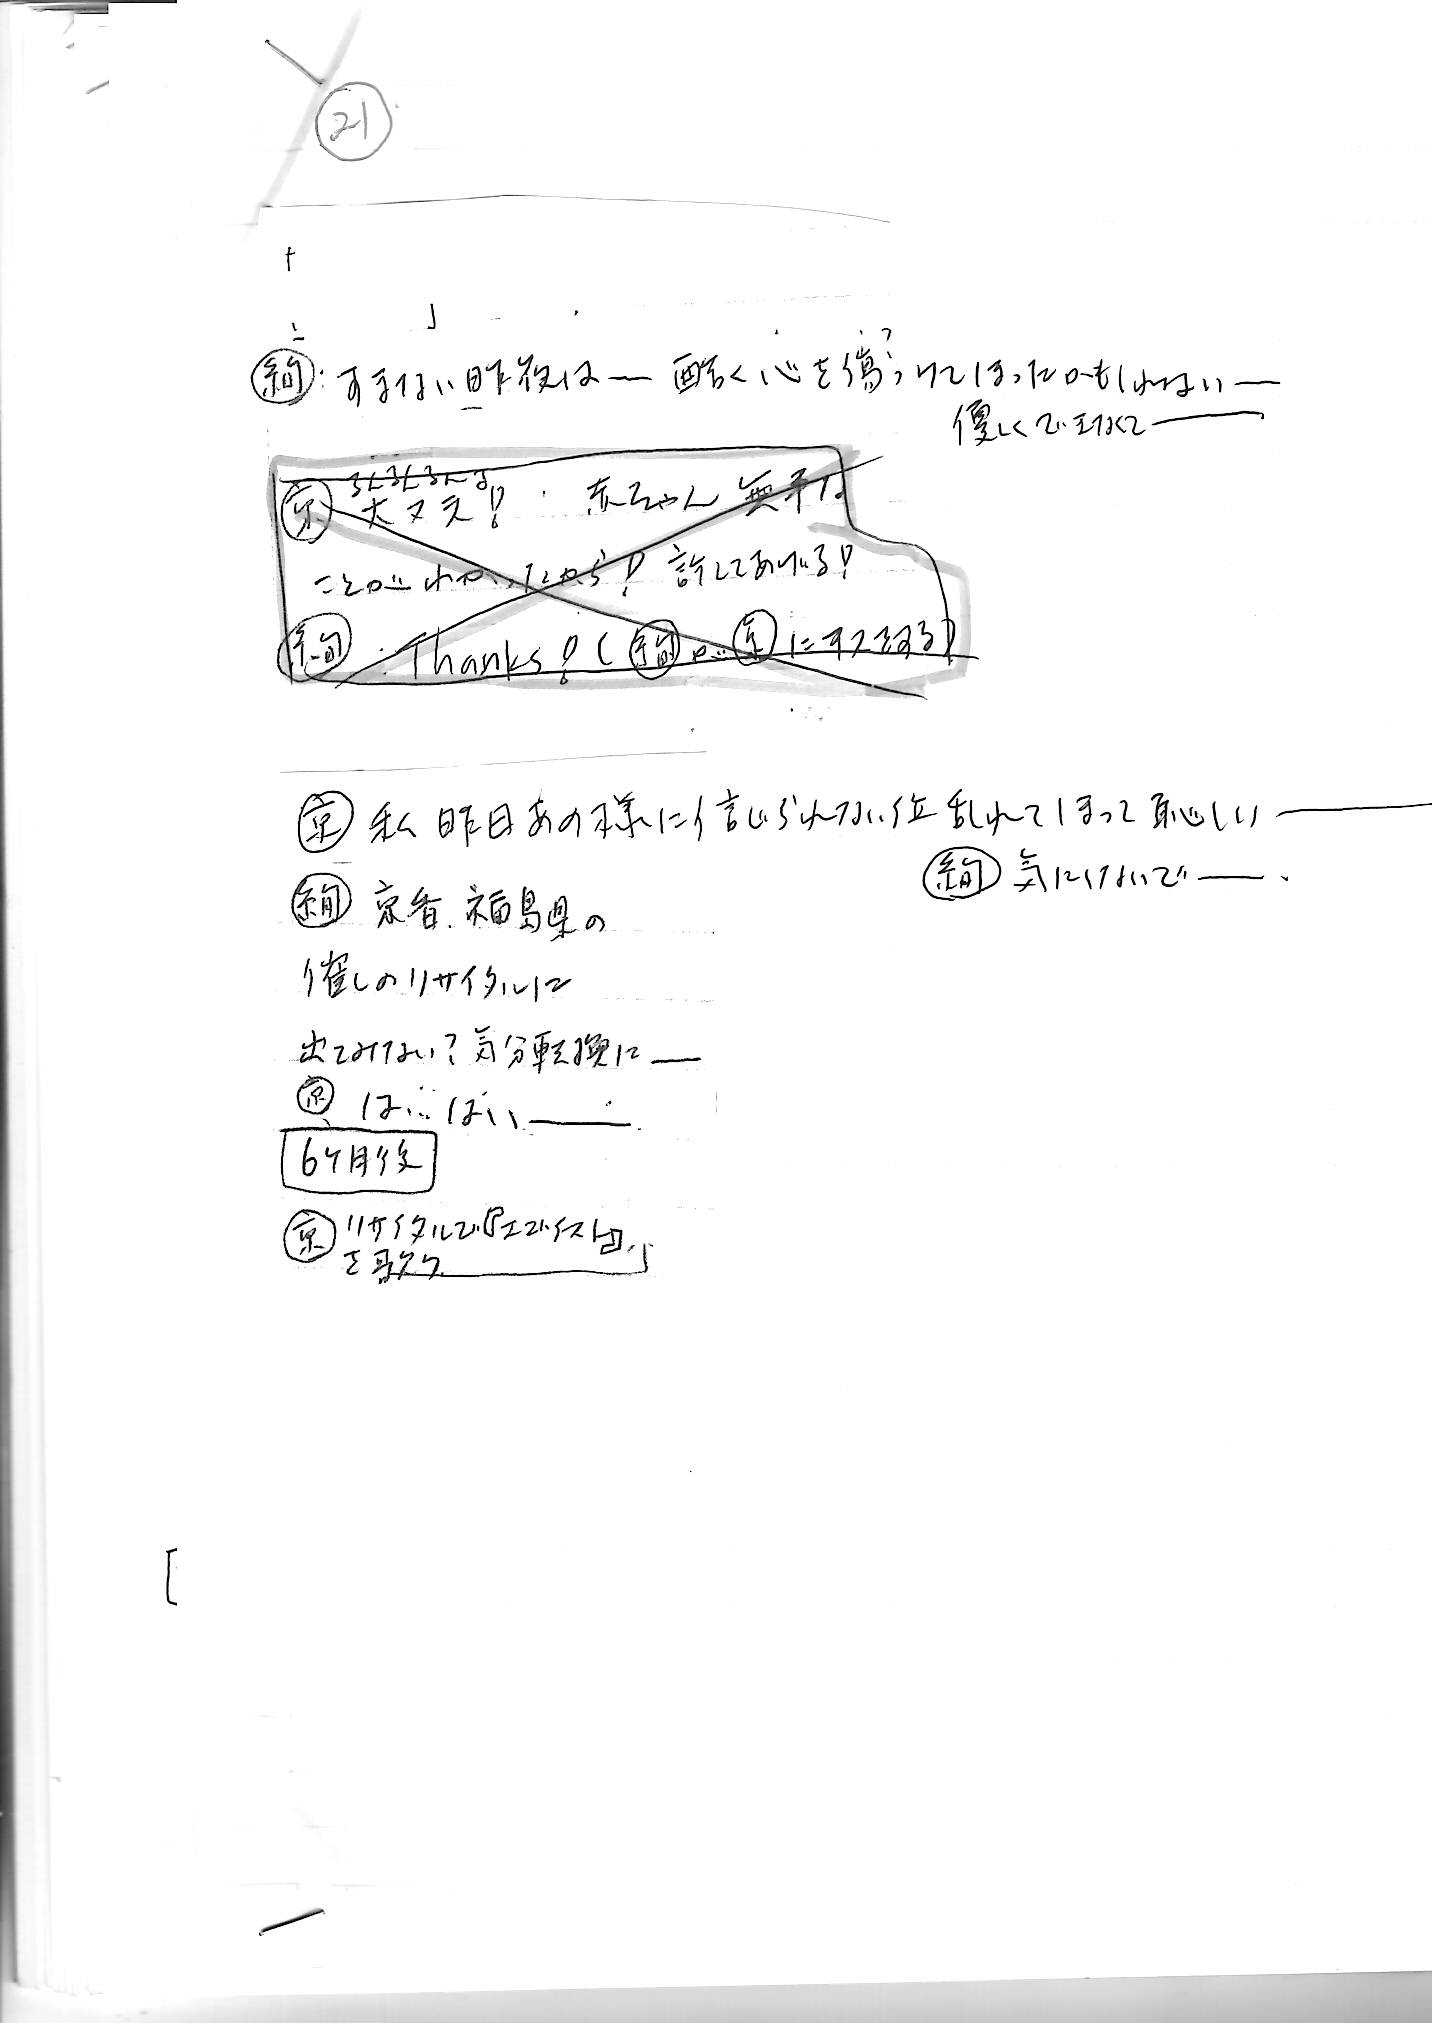 21
絢:すまない昨夜は― 酷く心を傷つけてしまったかもしれない―
優しくできなくて―
るんるんるんる
京 大丈夫! 赤ちゃん 無事な
ことがわかったから! 許してあげる!
絢 Thanks!(絢が京にキスをする)
京 私昨日あの様に信じられない位乱れてしまって恥しい―
絢 気にしないで―.
絢 京香.福島県の
催しのリサイタルに
出てみない?気分転換に―
京 はいはい―
6ケ月後
京 リサイタルで『エゴイスト』
を歌う